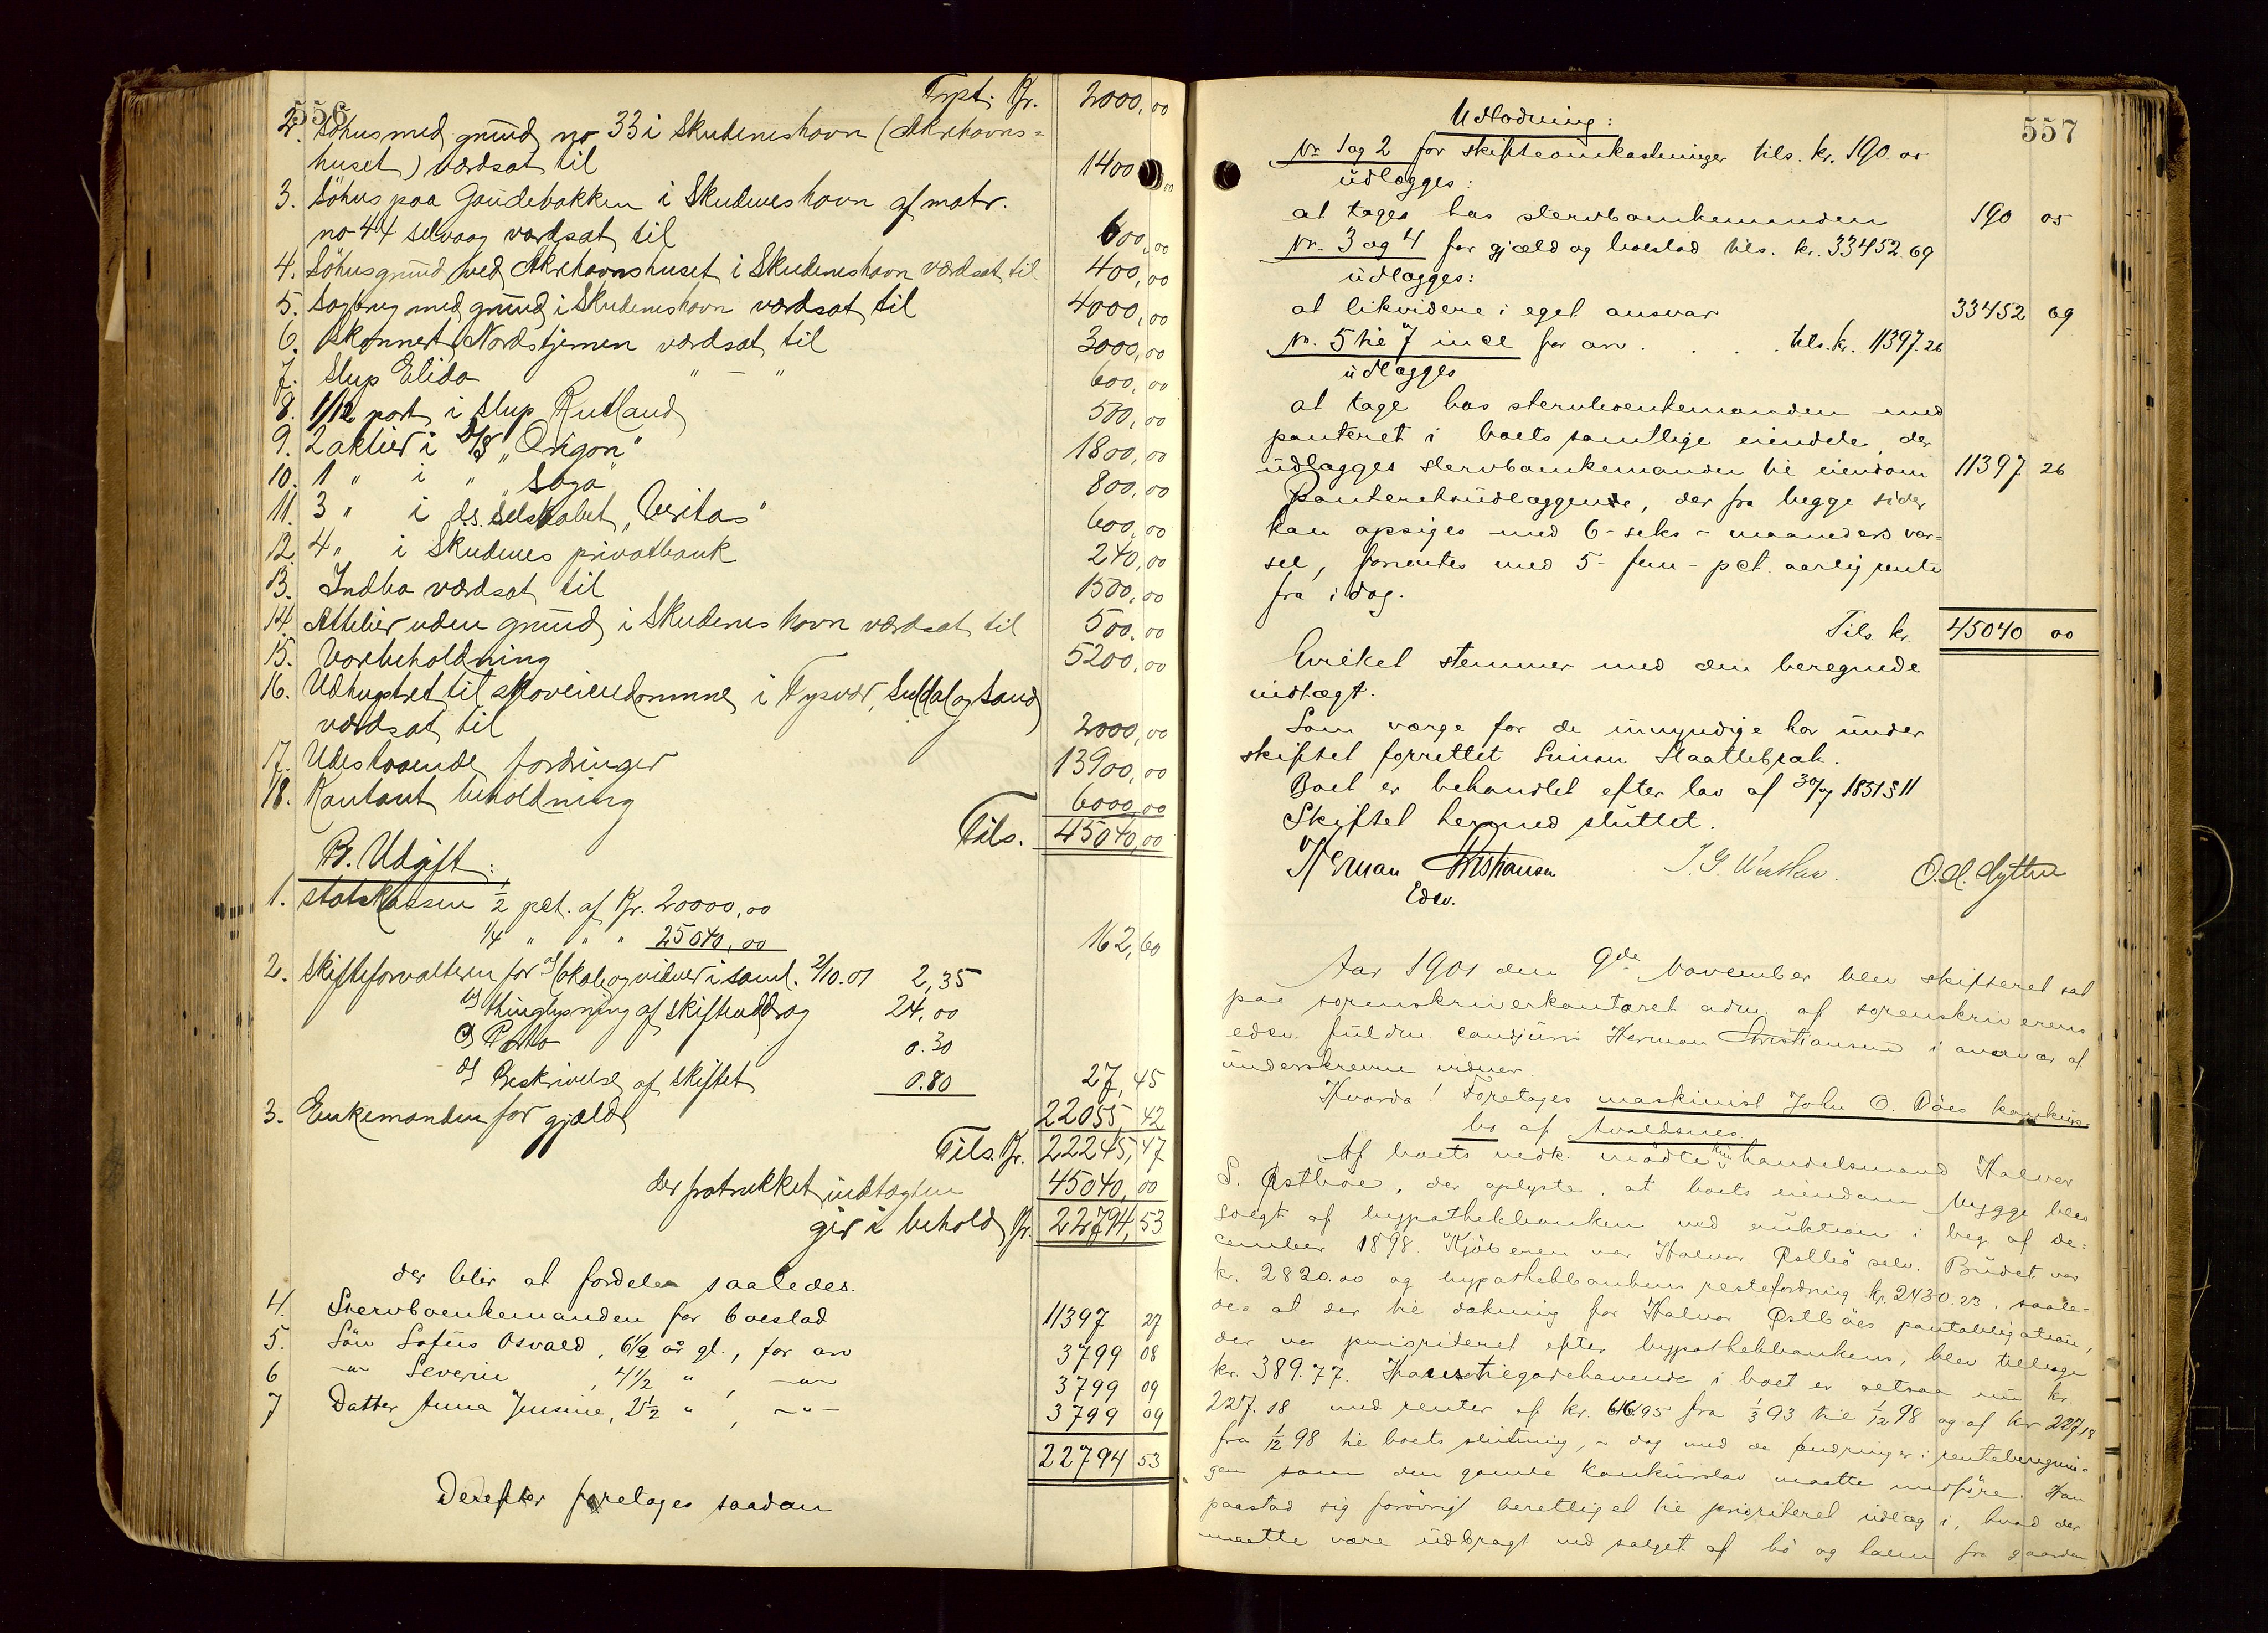 556
Trpt. Kr. 2000,00
2. Söhus med grund no 33 i Skudeneshavn (Akrehavns=
huset) værdsat til 1400,00
3. Söhus paa Gaudebakken i Skudeneshavn af matr.
no 44 Selvaag værdsat til 600,00
4. Söhusgrund ved Akrehavnshuset i Skudeneshavn værdsat til 400,00
5. Sagbrug med grund i Skudeneshavn værdsat til 4000,00
6. Skonnert Nordstjernen værdsat til 3000,00
7. Slup Elida " — " 600,00
8. 1/12 part i Slup Rutland 500,00
9. 2 aktier i D/S "Origon" 1800,00
10. 1 " i " "Saga" 800,00
11. 3 " i d.s. selskabet "Veritas" 600,00
12. 4 " i Skudenes privatbank 240,00
13. Indbo værdsat til 1500,00
14. Attelier uden grund i Skudeneshavn værdsat til 500,00
15. Varebeholdning 5200,00
16. Udhugstret til skoveiendomme i Tysvær, Suldal og Sand
værdsat til 2000,00
17. Udestaaende fordringer 13900,00
18. Kontant beholdning 6000,00
Tils. 45040,00
B. Udgift:
1. Statskassen 1/2 pct. af Kr. 20000,00
1/4 " " " 25040,00 162,60
2. Skifteforvalteren for a) lokale og vidner i saml. 2/10.01 2,35
b) thinglysning af skifteuddrag 24,00
c) Porto 0.30
d) Beskrivelse af skiftet 0.80 27,45
3. Enkemanden for gjæld 22055,42
Tils. Kr. 22245,47
der fratrukket indtægten 45040,00
gir i behold Kr. 22794,53
der blir at fordele saaledes.
4. Stervboenkemanden for boeslod 11397 27
5. Sön Sofus Osvald, 6 1/2 år gl., for arv 3799 08
6 —"— Severin, 4 1/2 ", —"— 3799 09
7 Datter Anna Jensine, 2 1/2 ", —"— 3799 09
22794 53
Derefter foretages saadan
557
Udlodning:
Nr. 1 og 2 for skifteomkostninger tils. kr. 190.05
udlægges:
at tages hos stervboenkemanden 190 05
Nr. 3 og 4 for gjæld og boeslod tils. kr. 33452.69
udlægges:
at likvidere i eget ansvar 33452 69
Nr. 5 til 7 incl for arv . . . tils. kr. 11397.26
udlægges
at tage hos stervboenkemanden med
panteret i boets samtlige eiendele, der
udlægges stervboenkemanden til eiendom 11397 26
Panteretsudlæggende, der fra begge sider
kan opsiges med 6 - seks - maaneders var=
sel, forrentes med 5 - fem - pct. aarlig rente
fra idag.
Tils. kr. 45040 00
hvilket stemmer med den beregnede
indtægt.
Som værge for de umyndige har under
skiftet forrettet Simon Slaattebræk.
Boet er behandlet efter lov af 30/7 1851 § 11
Skiftet hermed sluttet.
Herman Christiansen
Edsv.
O.H. Lytten
Aar 1901 den 9de November blev skifteret sat
paa sorenskriverkontoret adm. af sorenskriverens
edsv. fuldm. cand juris Herman Christiansen i overvær af
underskrevne vidner.
Hvorda! Foretages maskinist John O. Döes konkurs
bo af Avaldsnes.
Af boets vedk. mödte kun handelsmand Halvor
S. Østböe, der oplyste, at boets eiendom Nygge blev
solgt af hypothekbanken ved auktion i beg. af de=
cember 1898. Kjöberen var Halvor Østbö selv. Budet var
kr. 2820.00 og hypothekbankens restefordring kr. 2430.23, saale=
des at der til dækning for Halvor Östböes pantobligation,
der var prioriteret efter hypothekbankens, blev tilbage
kr. 389.77. Hans tilgodehavende i boet er altsaa nu kr.
227.18 med renter af kr. 616.95 fra 1/3 93 til 1/12 98 og af kr 227.18
fra 1/12 98 til boets slutning, - dog med de ændringer i renteberegnin=
gen som den gamle konkurslov maatte medföre. Han
paastod sig forövrigt berettiget til prioriteret udlæg i, hvad der
maatte være udbragt ved salget af hö og halm fra gaarden